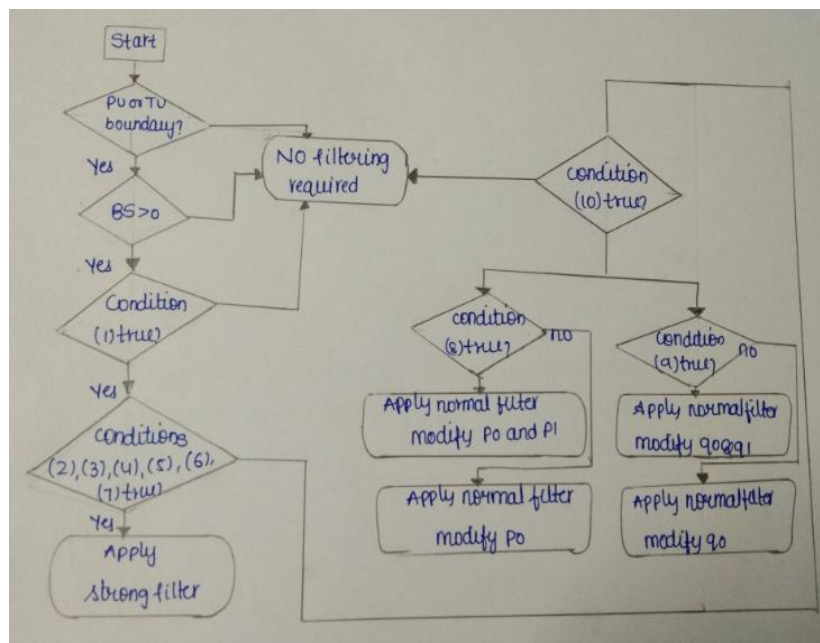 Start
PU or TU
boundary?
Yes
BS>0
Yes
Condition
(1) true?
Yes
Conditions
(2),(3),(4),(5),(6),
(7) true?
Yes
Apply
strong filter
NO filtering
required
Condition
(10) true?
condition
(8) true?
no
Apply normal filter
modify P0 and P1
Apply normal filter
modify P0
condition
(9) true?
no
Apply normal filter
modify q0&q1
Apply normal filter
modify q0